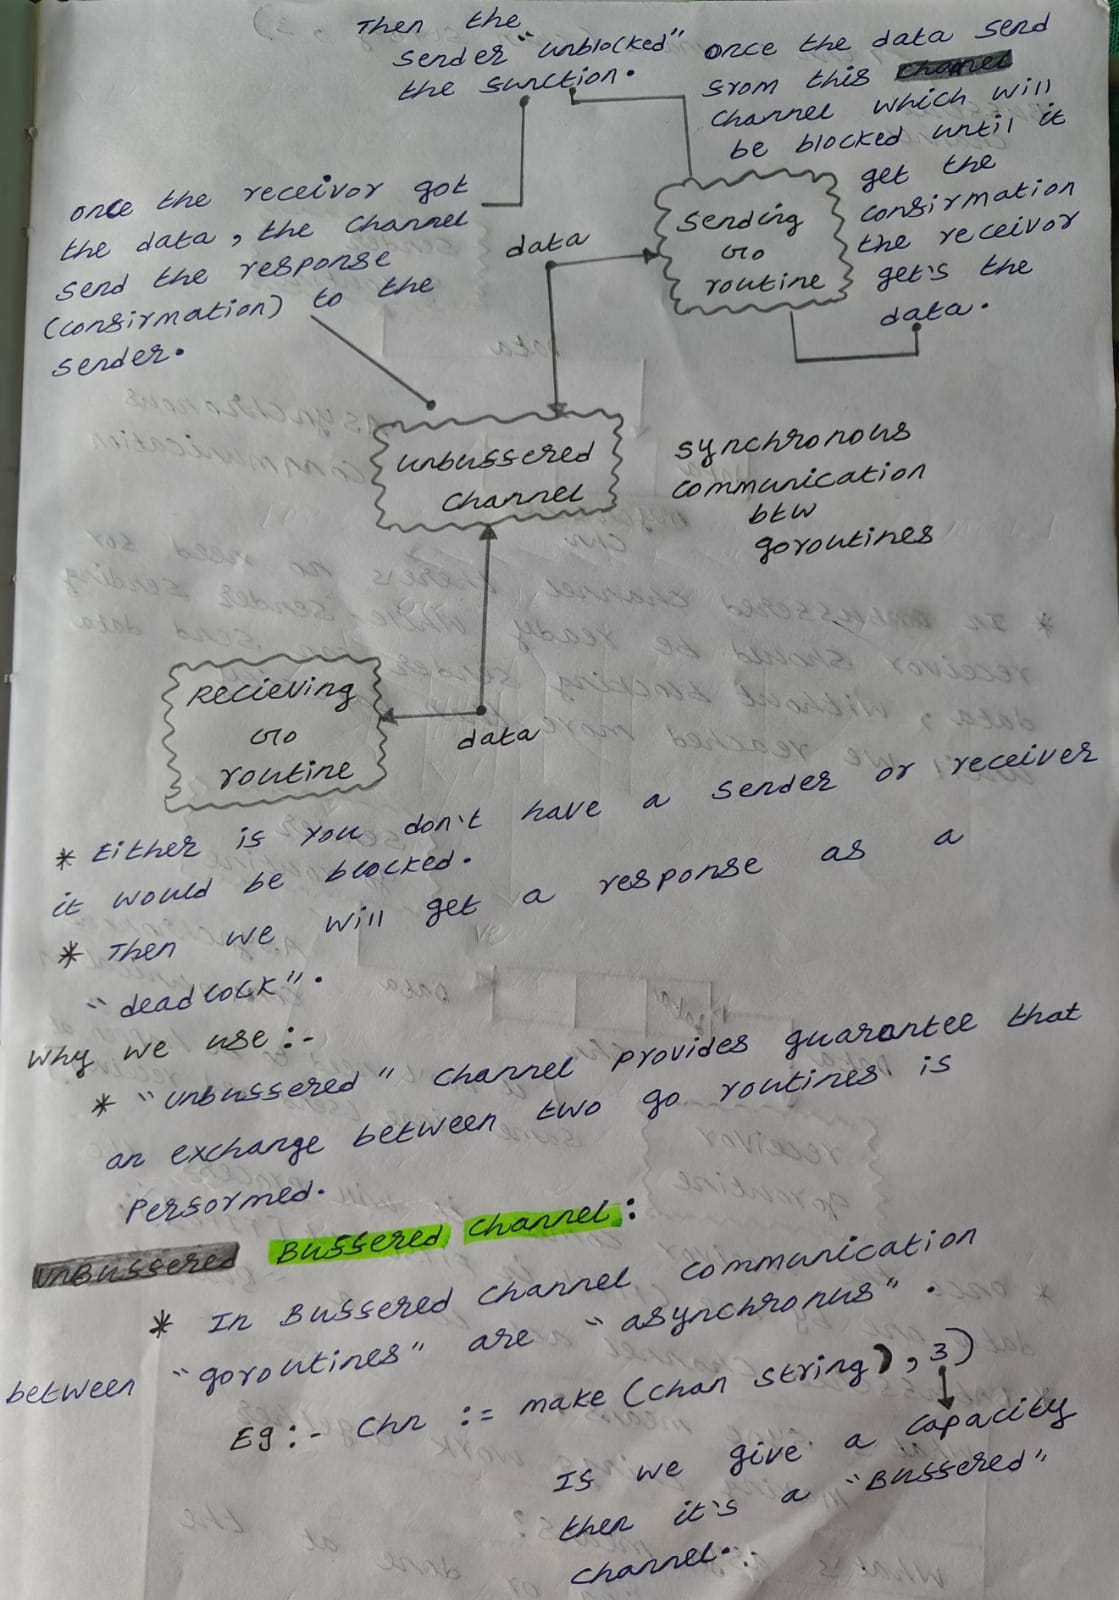 Then the
sender "unblocked"
the function.
once the data send
from this channel
channel which will
be blocked until it
get the
confirmation
the receivor
get's the
data.
once the receivor got
the data, the channel
send the response
(confirmation) to the
sender.
data
Sending
Go
routine
unbuffered
channel
synchronous
communication
btw
goroutines
Recieving
Go
routine
data
* Either if you don't have a sender or receiver
it would be blocked.
* Then we will get a response as a
"deadlock".
Why we use :-
* "unbuffered" channel provides guarantee that
an exchange between two go routines is
performed.
UnBuffered Buffered Channel:
* In Buffered channel communication
between "goroutines" are "asynchronus".
Eg:- Chn := make(chan string), 3)
If we give a capacity
then it's a "Buffered"
channel.